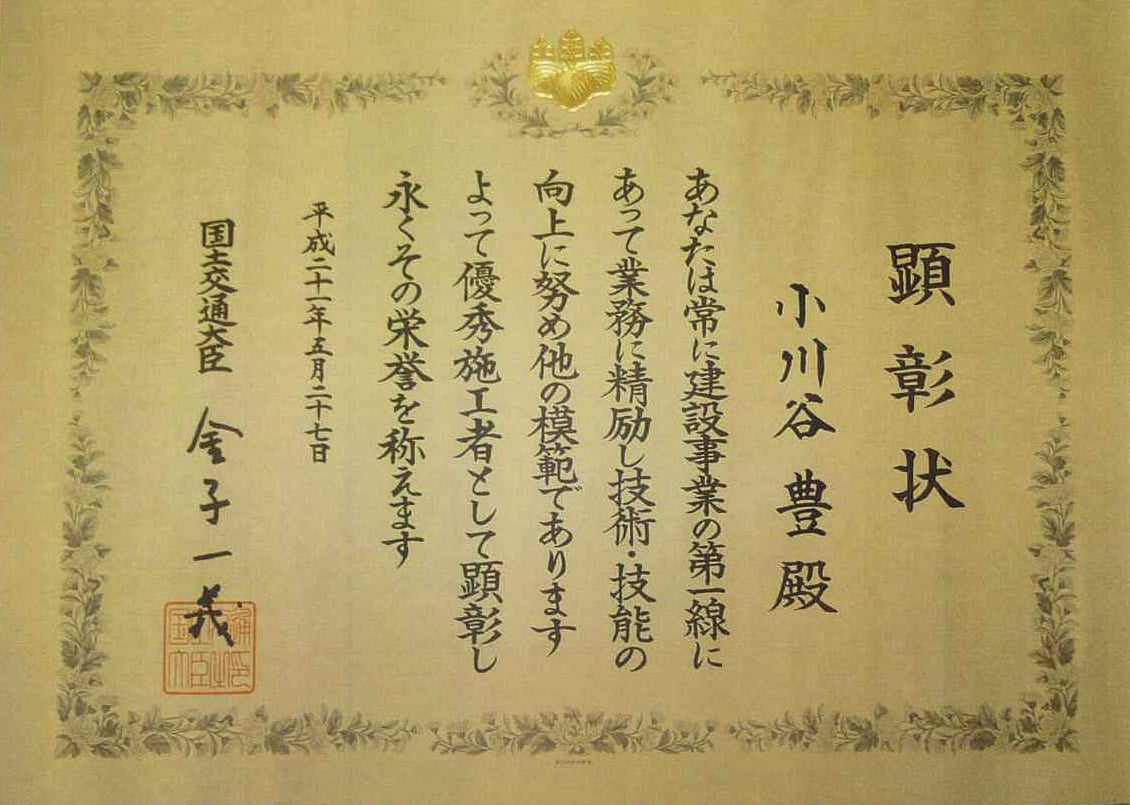 顕彰状
小川谷 豊 殿
あなたは常に建設事業の第一線に
あって業務に精励し技術・技能の
向上に努め他の模範であります
よって優秀施工者として顕彰し
永くその栄誉を称えます
平成二十一年五月二十七日
国土交通大臣 金子一義